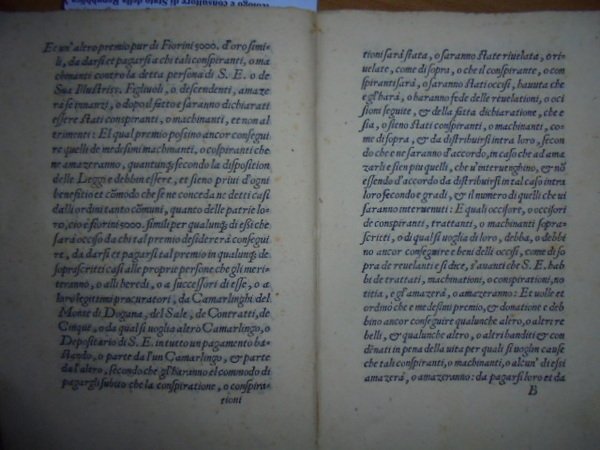 teologo e consultore di Stato della Repubblica
Et un'altro premio pur di Fiorini 5000. d'oro simi-
li, da darsi et pagarsi a chi tali conspiranti, o ma
chinanti contro la detta persona di S. E. o de
Sua Illustriss. Figliuoli, o descendenti, amaze
rà se innanzi, o dopo il fatto e saranno dichiarati
essere stati conspiranti, o machinanti, et non al
trimenti: El qual premio possino ancor consegui
re quelli de medesimi machinanti, o cōspiranti che
ne amazeranno, quantunq; secondo la dispositione
delle Leggi e debbin essere, et sieno privi d'ogni
benefitio et cōmodo che se ne conceda ne detti casi
dalli ordini tanto cōmuni, quanto delle patrie lo-
ro, cio è fiorini 5000. simili per qualunq; di essi che
sarà occiso da chi tal premio desidererà consegui
re, da darsi et pagarsi tal premio in qualunq; de
soprascritti casi alle proprie persone che gli meri-
teranno, o alli heredi, o a successori di esse, o a
loro legittimi procuratori, da Camarlinghi del
Monte di Dogana, del Sale, de Contratti, de
Cinque, o da qual si voglia altro Camarlingo, o
Depositario di S. E. in tutto un pagamento ba-
stando, o parte da l'un Camarlingo, & parte
da l'altro, secondo che gl'haranno el commodo di
pagargli subito che la conspiratione, o conspira-
tioni
tioni sarà stata, o saranno state rivelata, o ri-
velate, come di sopra, o che il conspirante, o con
spiranti sarà, o saranno stati occisi, havuta che
e gl'harà, o haranno fede delle revelationi, o oci
sioni seguite, & della fatta dichiaratione, che e
sia, o sieno stati conspiranti, o machinanti, co-
me di sopra, & da distribuirsi intra loro, secon
do che ne saranno d'accordo, in caso che ad ama
zarli e sien piu quelli, che u'intervenghino, & nō
essendo d'accordo da distribuirsi in tal caso intra
loro secondo e gradi, & il numero di quelli che vi
saranno intervenuti: E quali occisore, o occisori
de conspiranti, trattanti, o machinanti sopra-
scritti, o di qual si voglia di loro, debba, o debbi
no ancor conseguire e beni delli occisi, come di so
pra de revelanti e si dice, s'avanti che S. E. hab
bi de trattati, machinationi, o conspirationi, no
titia, e gl'amazerà, o amazeranno: Et volle et
ordinò che e medesimi premio, & donatione e deb
bino ancor conseguire qualunche altro, o altri re
belli, & qualunche altro, o altri banditi & con
dēnati in pena della vita per quali si voglin cause
che tali conspiranti, o machinanti, o alcun' di essi
amazerà, o amazeranno: da pagarsi loro et da
B